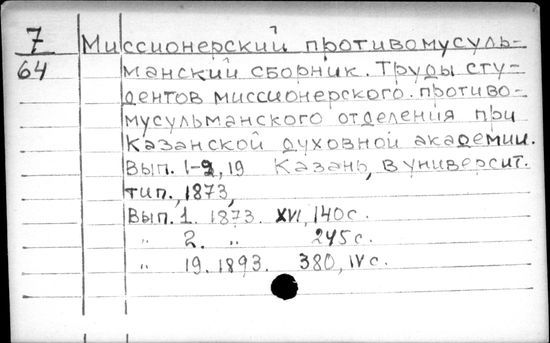 7
64
Миссионерский противомусуль-
манский сборник. Труды сту-
дентов миссионерского.противо-
мусульманского отделения при
Казанской духовной академии.
Вып. 1-2, 19 Казань, в университ.
тип., 1873,
Вып. 1. 1873. XVI, 140 с.
" 2. " 245 с.
" 19. 1893. 380, IV с.